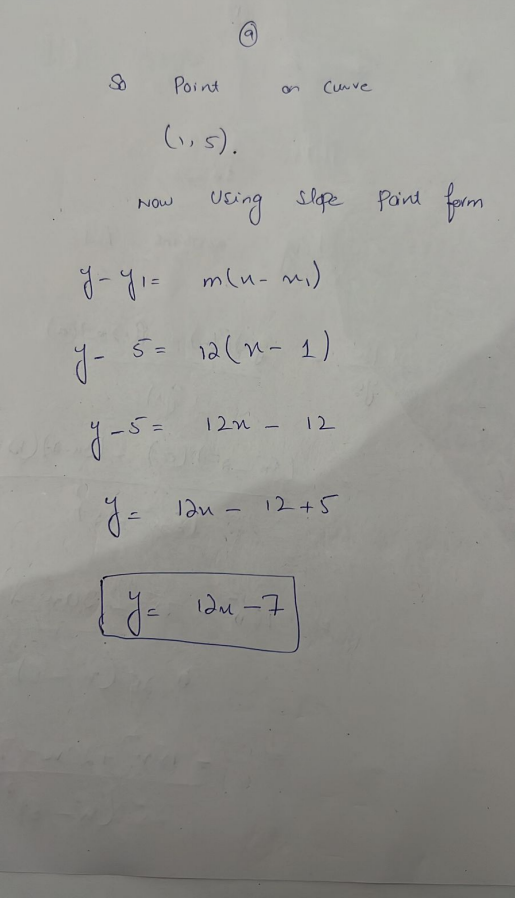 (9)
So Point on curve
(1, 5).
Now Using slope Point form
y - y1 = m(x - x1)
y - 5 = 12(x - 1)
y - 5 = 12x - 12
y = 12x - 12 + 5
y = 12x - 7